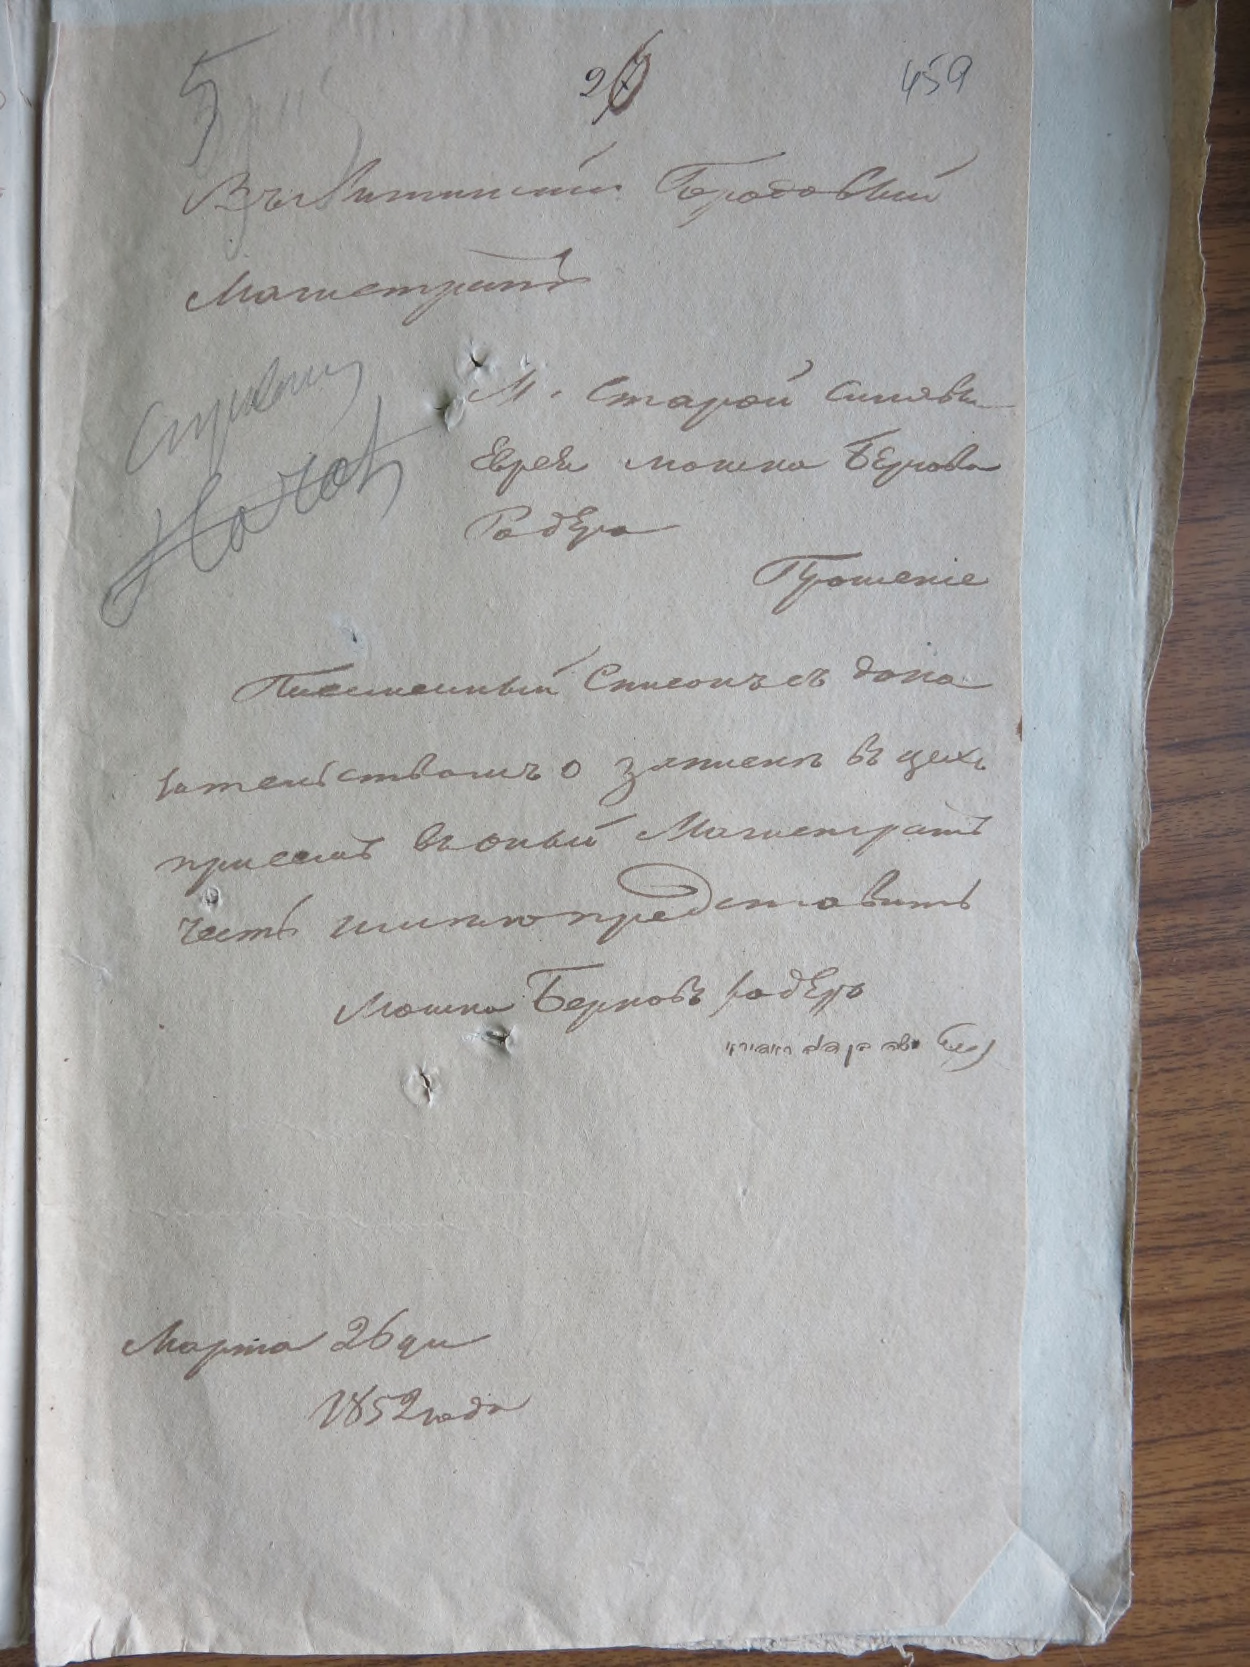 5
26
459
Въ Литинскій Городовый
Магистратъ
М. Старой Синявы
Еврея Мошка Беркова
Радера
Прошеніе
Писменный Списокъ съ дока
зательствомъ о записки въ цехъ
при семъ въ оный Магистратъ
честь имѣю представить
Мошко Берковъ Радеръ
משה בן
Марта 26 дня
1852 года